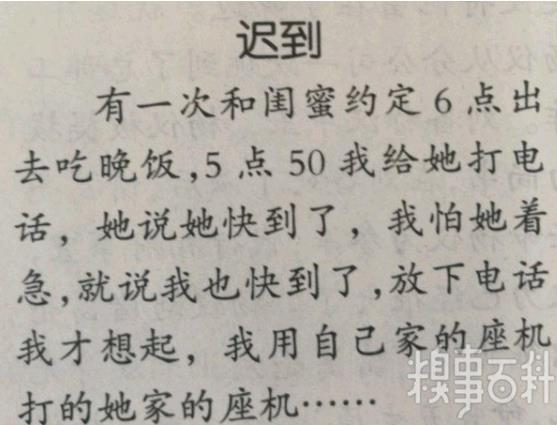 迟到
有一次和闺蜜约定6点出
去吃晚饭,5点50我给她打电
话，她说她快到了，我怕她着
急,就说我也快到了,放下电话
我才想起，我用自己家的座机
打的她家的座机……
糗事百科